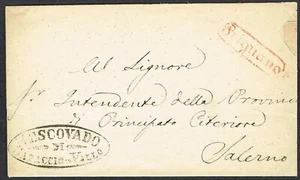 Al Signore
Sr. Intendente della Provincia
di Principato Citeriore
Salerno
VESCOVADO
DI
CAPACCIO-VALLO